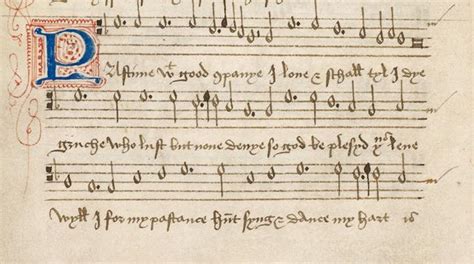 PAstime wt good ꝯpanye I loue & schall tyl I dye
gruche who lust but none denye so god be plesyd yus leue
wyll I for my pastance hunt syng & dance my hart is